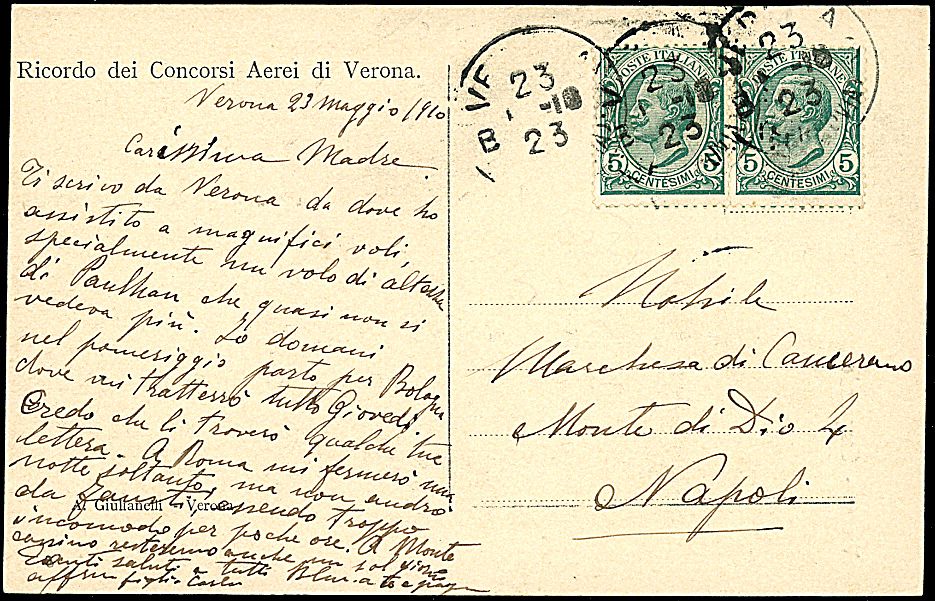 Ricordo dei Concorsi Aerei di Verona.
Verona 23 Maggio/910
Carissima Madre
Ti scrivo da Verona da dove ho
assistito a magnifici voli,
specialmente un volo di altezza
di Paulhan che quasi non si
vedeva più. Io domani
nel pomeriggio parto per Bologna
dove mi tratterrò tutto Giovedì
Credo che li troverò qualche tua
lettera. A Roma mi fermerò una
notte soltanto, ma non andrò
da Fausti, essendo troppo
A. Giulianelli Verona
incomodo per poche ore. A Monte
cassino resteremo anche un sol giorno
Tanti saluti a tutti a te e papà
aff figlio Carlo
23
-10
23
POSTE ITALIANE
5 CENTESIMI 5
23
-10
23
POSTE ITALIANE
5 CENTESIMI 5
23
Nobile
Marchesa di Camerano
Monte di Dio 4
Napoli